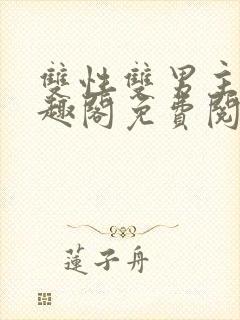 雙性雙男主
趣閣免費閱
蓮子舟